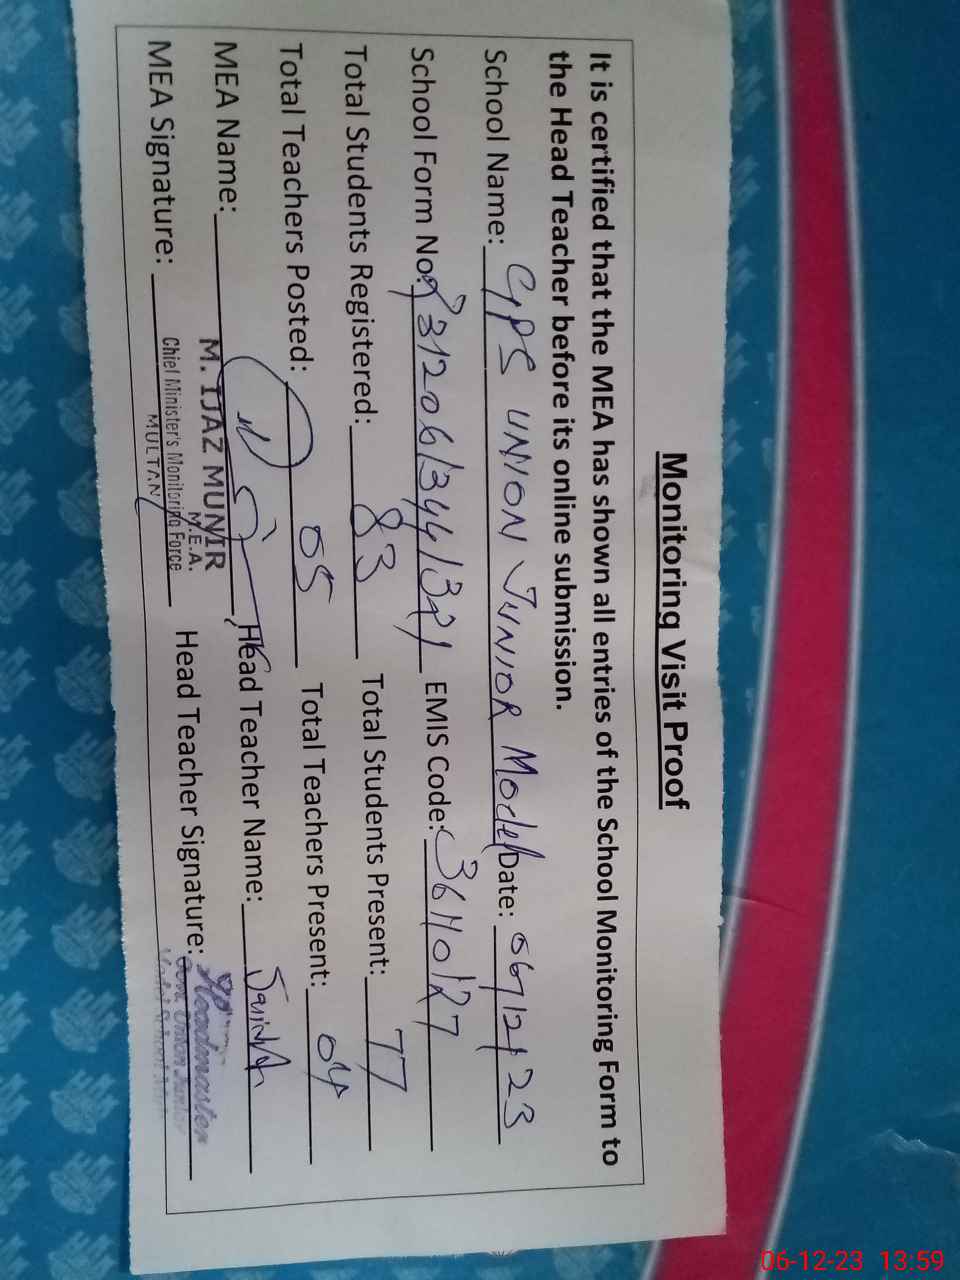 Monitoring Visit Proof
It is certified that the MEA has shown all entries of the School Monitoring Form to
the Head Teacher before its online submission.
School Name: GPS UNION JUNIOR Model Date: 06/12/23
School Form No: EMIS Code: 36110127
Total Students Registered: 83 Total Students Present: 77
Total Teachers Posted: 05 Total Teachers Present: 04
MEA Name: M. IJAZ MUNIR Head Teacher Name:
M.E.A.
MEA Signature: Chief Minister's Monitoring Force Head Teacher Signature: Headmaster
MULTAN
Union Junior
06-12-23 13:59